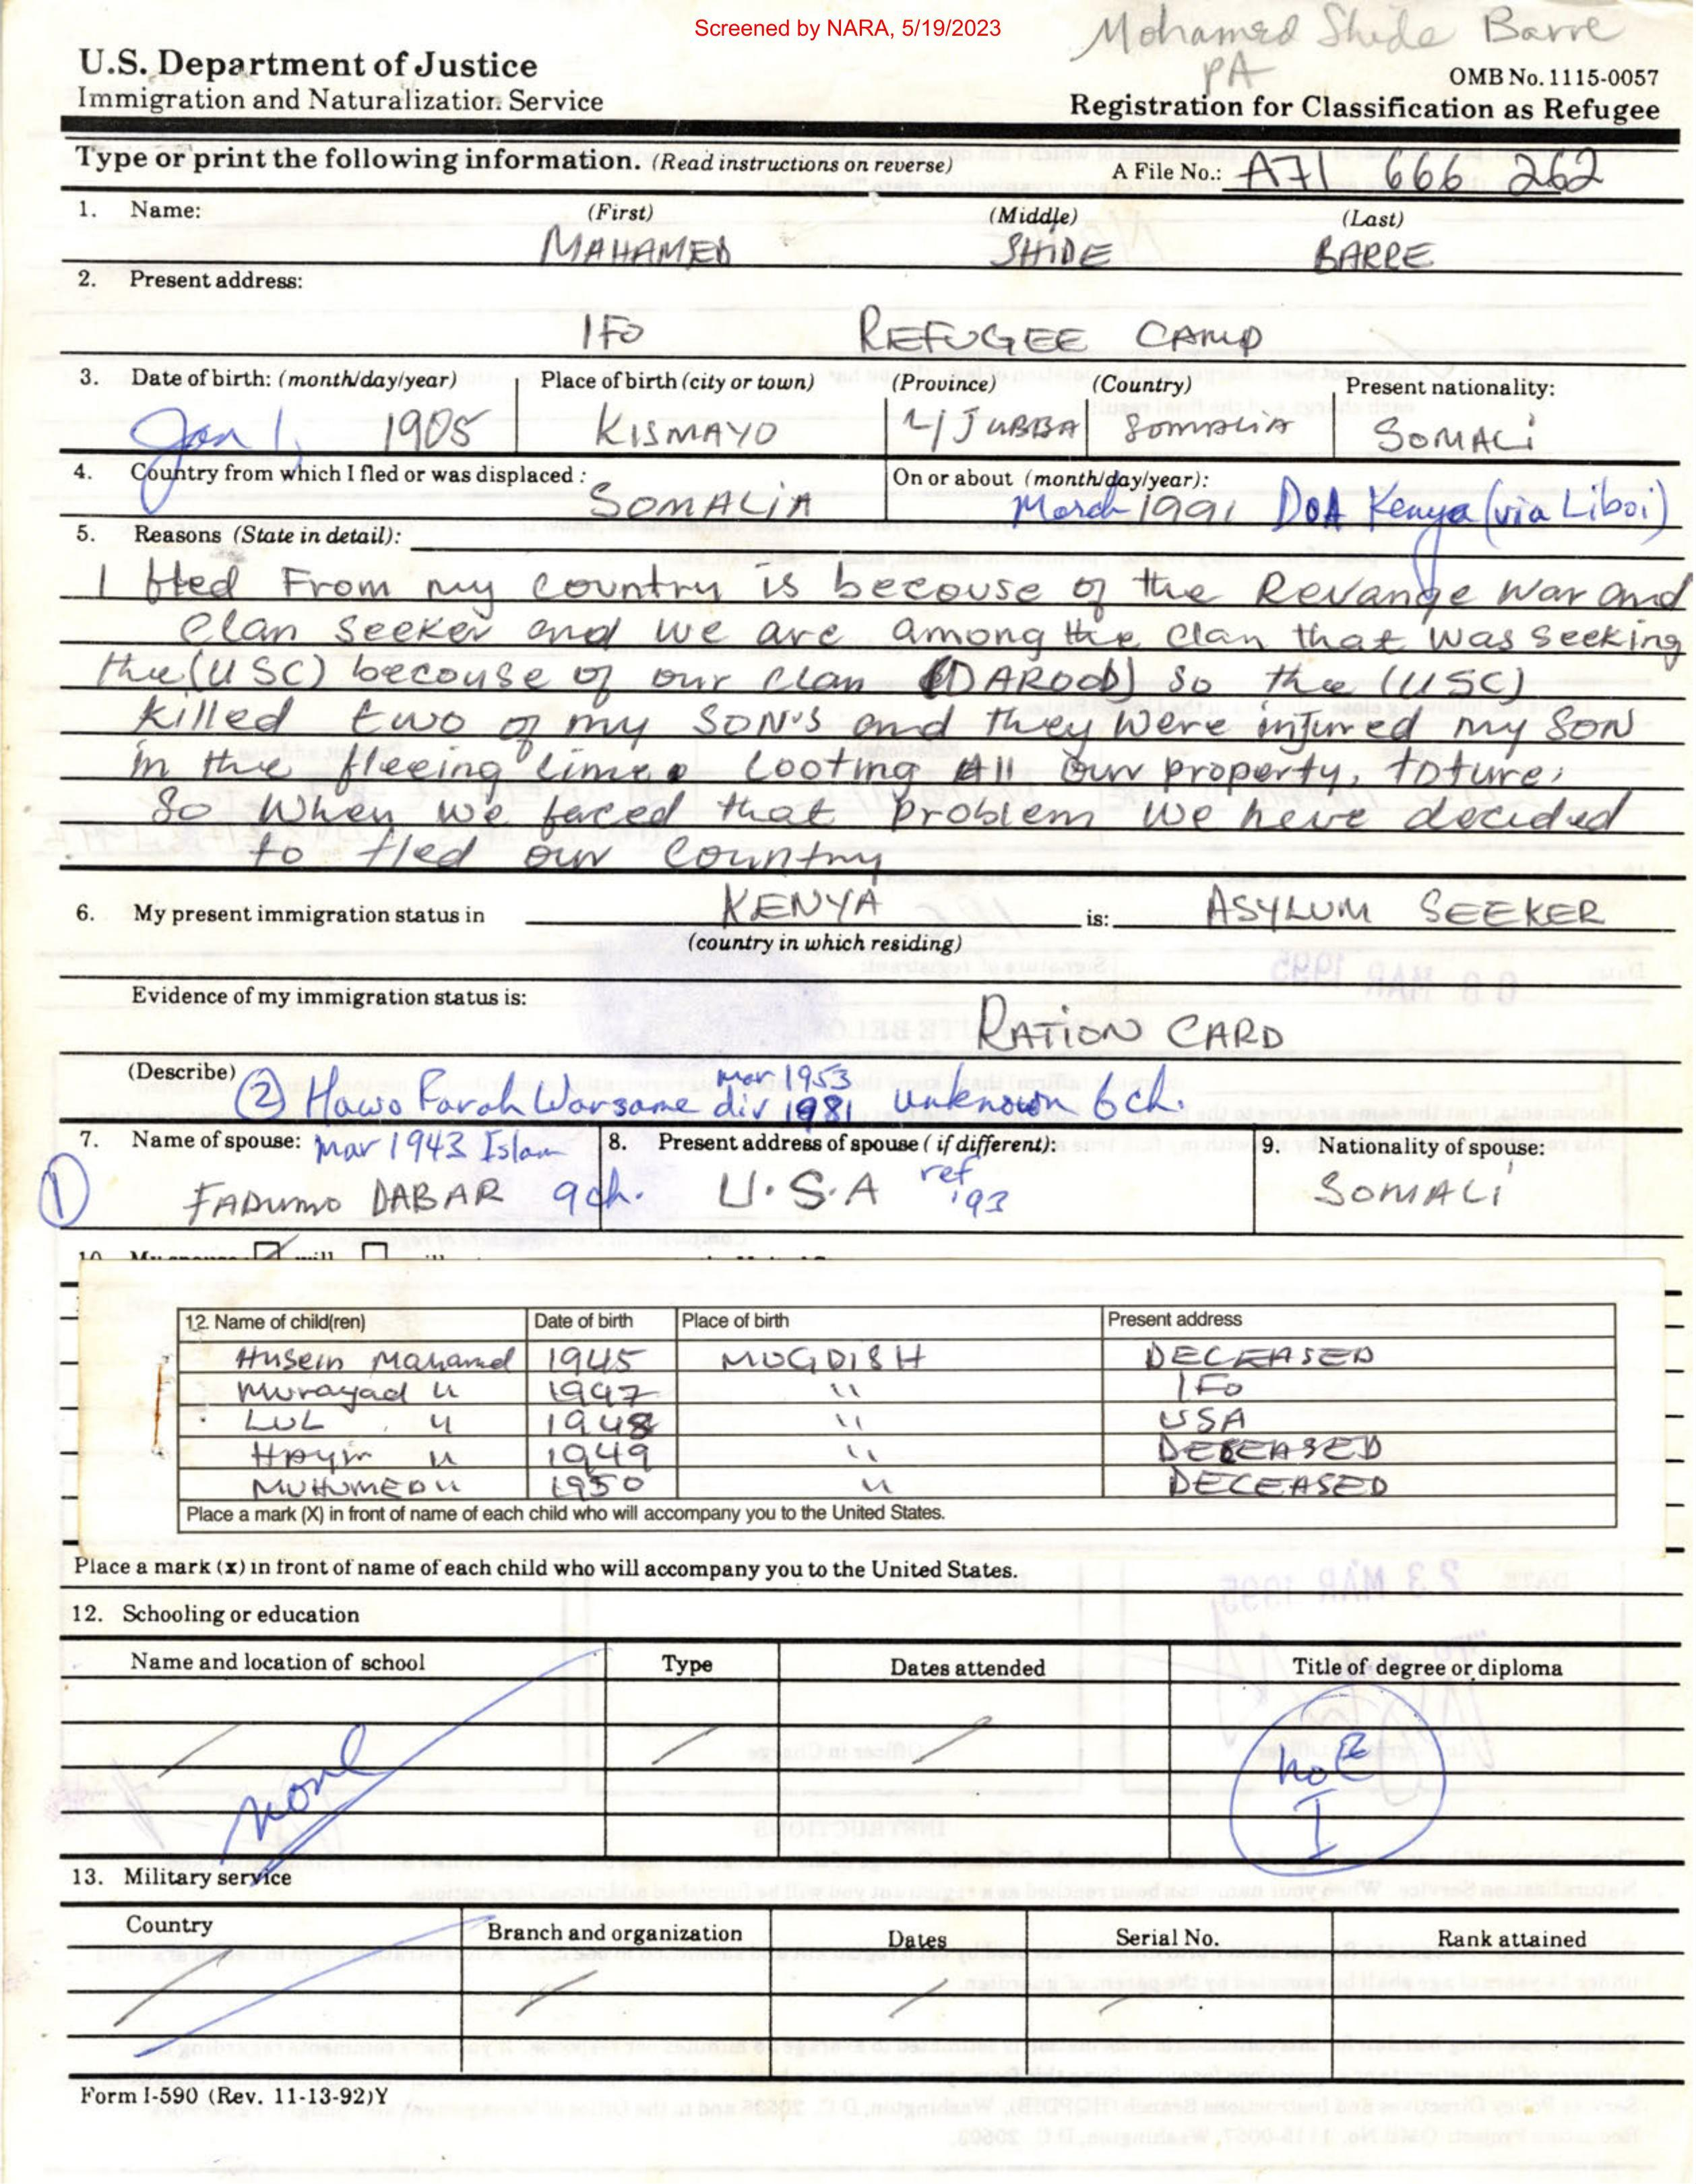 Screened by NARA, 5/19/2023
Mohamed Shide Barre
PA
U.S. Department of Justice
Immigration and Naturalization Service
OMB No. 1115-0057
Registration for Classification as Refugee
Type or print the following information. (Read instructions on reverse)
A File No.: A71 666 262
1. Name: (First) (Middle) (Last)
MAHAMED SHIDE BARRE
2. Present address:
IFO REFUGEE CAMP
3. Date of birth: (month/day/year) Place of birth (city or town) (Province) (Country) Present nationality:
Jan 1, 1905 KISMAYO L/JUBBA SOMALIA SOMALI
4. Country from which I fled or was displaced : On or about (month/day/year):
SOMALIA March 1991 DOA Kenya (via Liboi)
5. Reasons (State in detail):
I fled From my country is becouse of the Revange War and
Clan Seeker and we are among the clan that was seeking
the (USC) becouse of our clan (DAROOD) So the (USC)
killed two of my SON'S and they were injured my SON
in the fleeing time. Looting All our property, toture,
So when we faced that problem we have decided
to fled our country
6. My present immigration status in KENYA is: ASYLUM SEEKER
(country in which residing)
Evidence of my immigration status is:
RATION CARD
(Describe)
(2) Hawo Farah Warsame mar 1953 div 1981 unknown 6 ch.
7. Name of spouse: mar 1943 Islam 8. Present address of spouse ( if different): 9. Nationality of spouse:
(1) FADUMO DABAR 9 ch. U.S.A ref '93 SOMALI
12. Name of child(ren) Date of birth Place of birth Present address
Husein Mahamed 1945 MUGDISH DECEASED
Murayad " 1947 " IFO
LUL " 1948 " USA
" 1949 " DECEASED
MUHUMED " 1950 " DECEASED
Place a mark (X) in front of name of each child who will accompany you to the United States.
Place a mark (x) in front of name of each child who will accompany you to the United States.
12. Schooling or education
Name and location of school Type Dates attended Title of degree or diploma
none
no E
I
13. Military service
Country Branch and organization Dates Serial No. Rank attained
Form I-590 (Rev. 11-13-92)Y